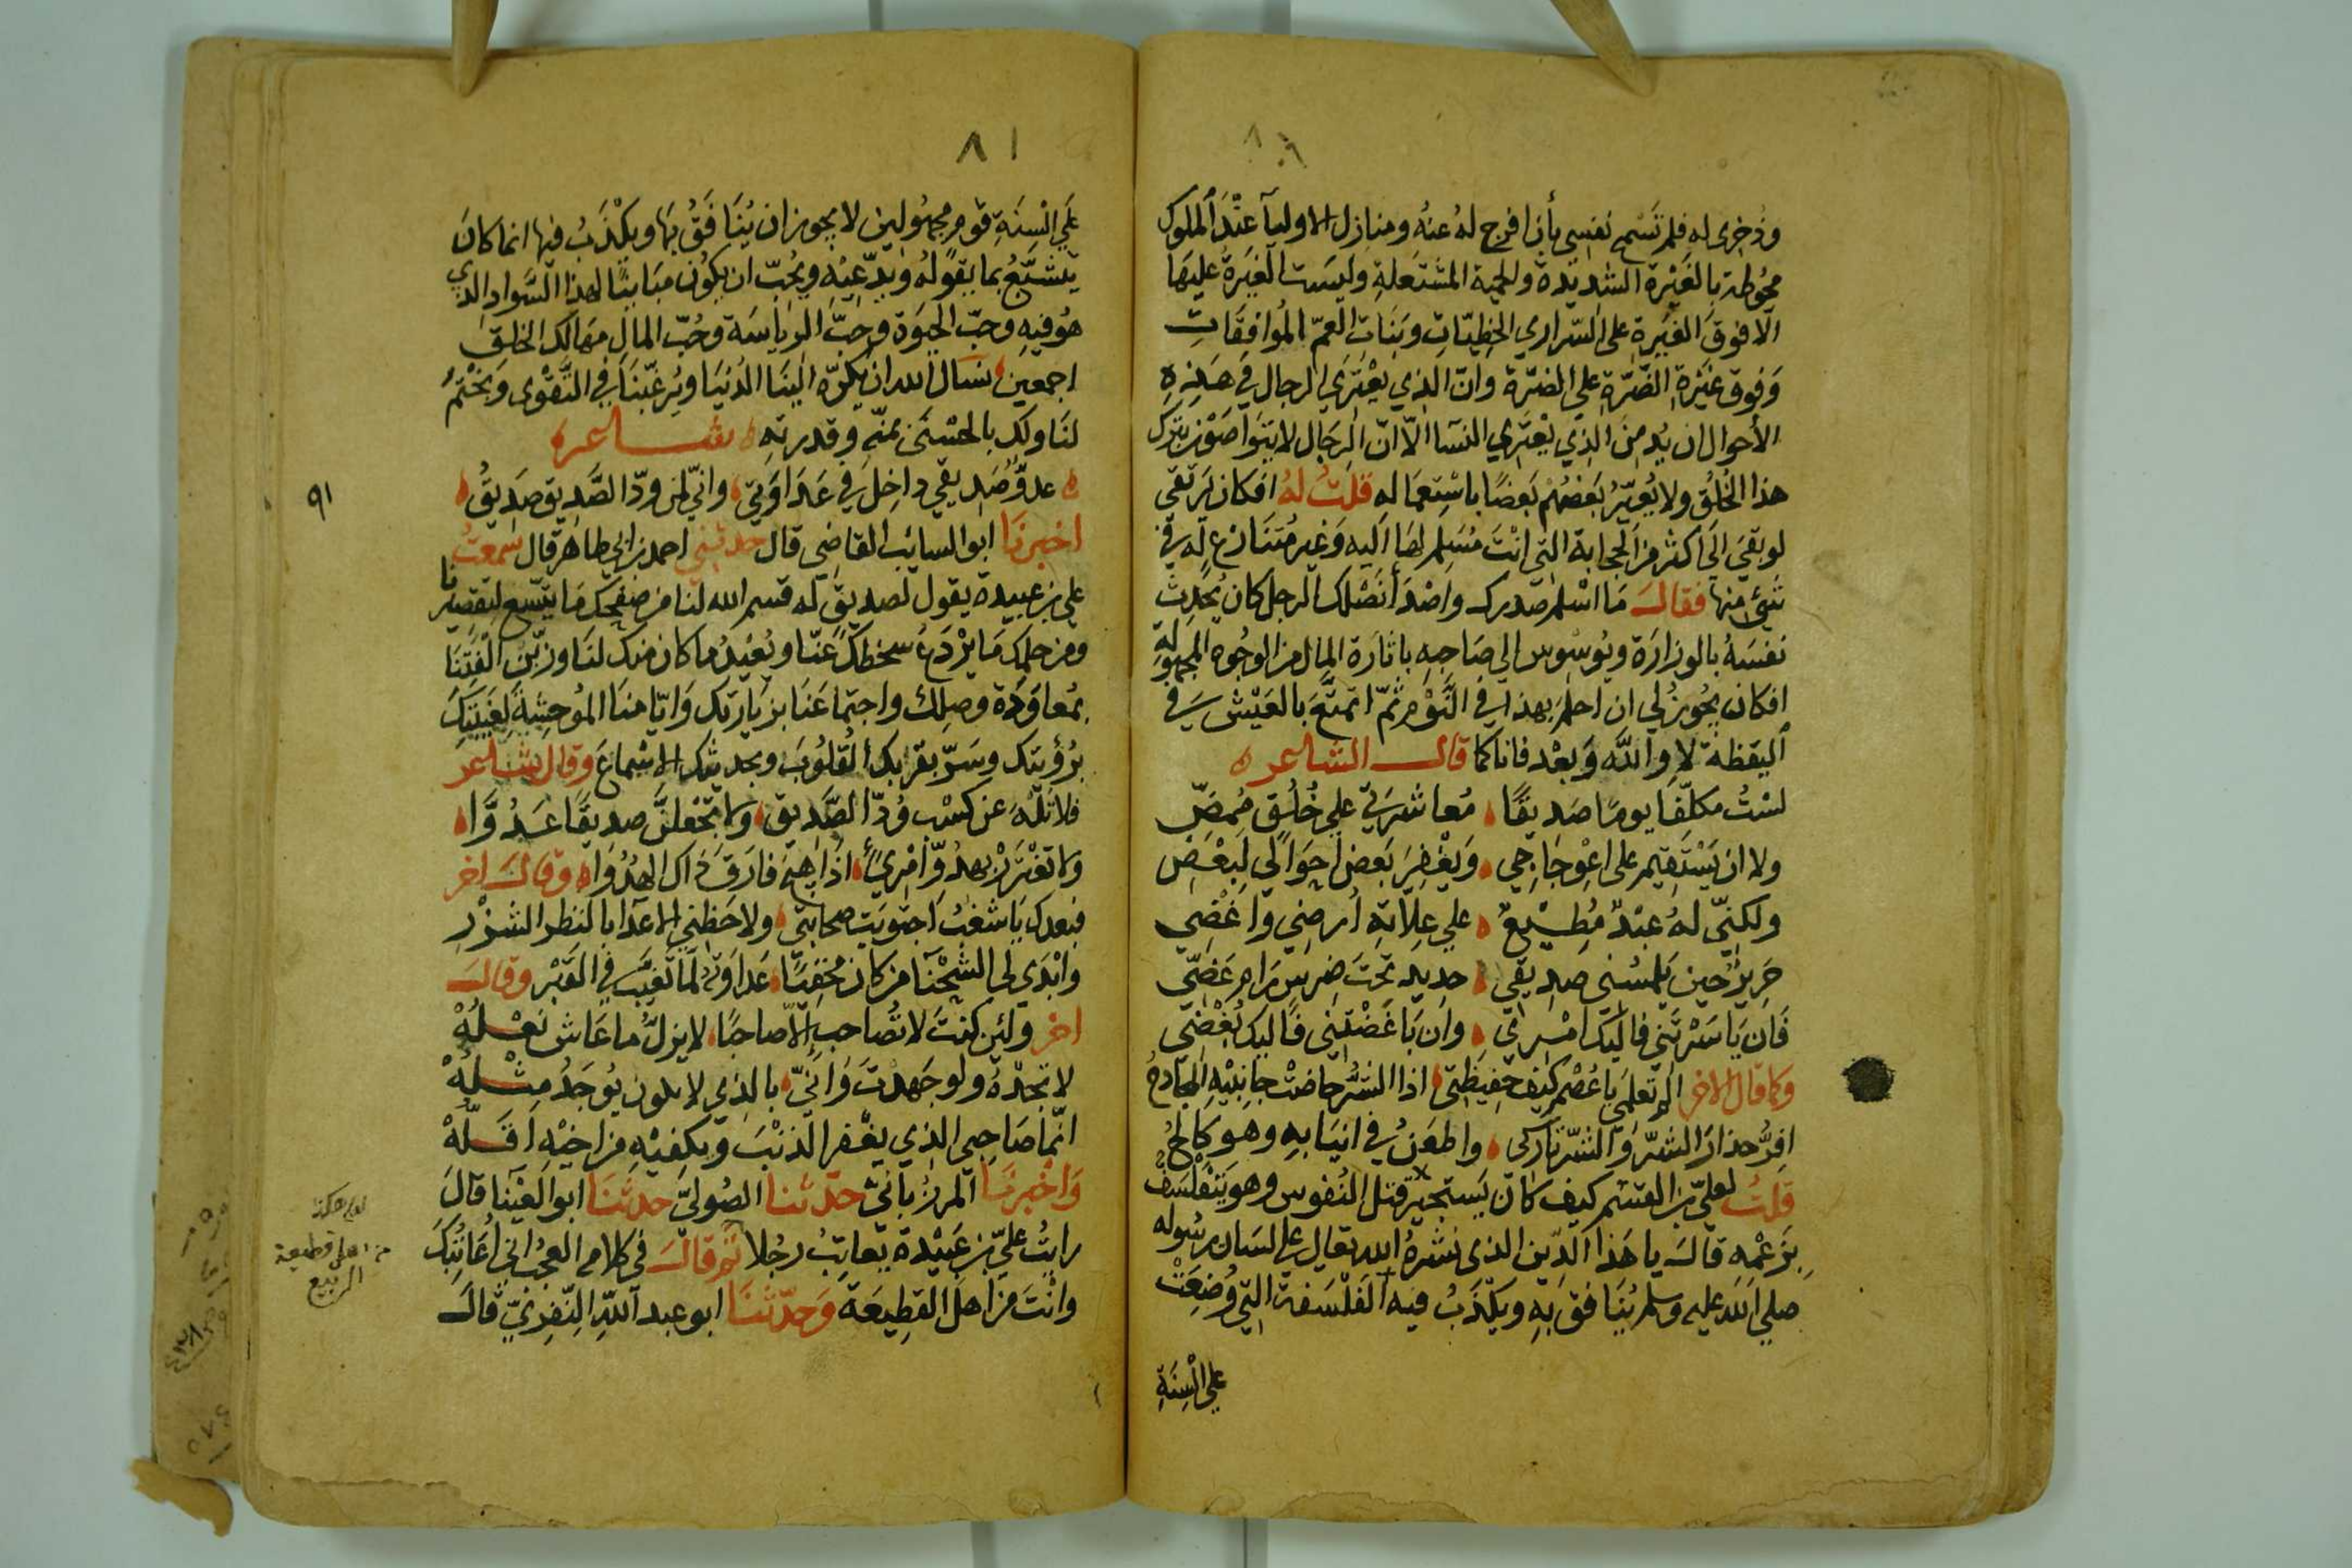 ٨٠
وذخرى له فلم تسمح نفسي بأن افرج له عنه ومنازل الاوليآ عند الملوك
محوطة بالغيرة الشديدة والحمية المشتعلة وليست الغيرة عليها
الا فوق الغيرة على السراري الحظيات وبنات العم الموافقات
وفوق غيرة الضرة على الضرة وان الذي يعتري الرجال في هذه
الأحوال ازيد من الذي يعتري النسا الا ان الرجال لا يتواصون بترك
هذا الخلق ولا يعير بعضهم بعضا باستعماله قلت له افكان يرتقي
لو بقي الى اكثر من الحجابة التي انت مسلم لها اليه وغير متنازع له في
شئ منها فقال ما اسلم صدرك واصدأ نصلك الرجل كان يحدث
نفسه بالوزارة ويوسوس الى صاحبه باثارة المال من الوجوه المجهولة
افكان يجوز لي ان احلم بهذا في النوم ثم اتمتع بالعيش في
اليقظة لا والله وبعد فانا كما قال الشاعر
لست مكلفا يوما صديقا معاشرتي على خلق ممض
ولا ان يستقيم على اعوجاجي ويغفر بعض احوالي لبعض
ولكني له عبد مطيع على علاته ارضي واغضي
حرير حين يلمسني صديقي حديد تحت ضرس رام عضي
فان ياسرتني فاليك امري وان باغضتني فاليك بغضي
وكما قال الاخر الم تعلمي يا عصم كيف حفيظتي اذا الشر خاضت جانبيه المجادح
افر حذار الشر والشر تاركي واطعن في انيابه وهو كالح
قلت لعلي بن القسم كيف كان يستجيز قتل النفوس وهو يتفلسف
بزعمه قال يا هذا الدين الذي نشره الله تعالى على لسان رسوله
صلى الله عليه وسلم ينافق به ويكذب فيه الفلسفة التي وضعت
على السنة
٨١
على السنة قوم مجهولين لا يجوز ان ينافق بها ويكذب فيها انما كان
يتشبع بما يقوله ويدعيه ويحب ان يكون مباينا لهذا السواد الذي
هو فيه وحب الحيوة وحب الرياسة وحب المال مهالك الخلق
اجمعين نسال الله ان يكره الينا الدنيا ويرغبنا في التقوى ويختم
لنا ولك بالحسنى بمنه وقدرته شاعر
عدو صديقي داخل في عداوتي واني لمن ود الصديق صديق
٩١
اخبرنا ابو السائب القاضي قال حدثني احمد بن ابي طاهر قال سمعت
علي بن عبيدة يقول لصديق له قسم الله لنا من صفحك ما يتسع لتقصيرنا
ومن حلمك ما يردع سخطك عنا ويعيد ما كان منك لنا وزين الفتنا
بمعاودة وصلك واجتماعنا بزيارتك وايامنا الموحشة لغيبتك
برؤيتك وسر بقربك القلوب وبحديثك الاسماع وقال شاعر
فلا تله عن كسب ود الصديق ولا تجعلن صديقا عدوا
ولا تغترر بهدو امرئ اذا هيج فارق ذاك الهدوا وقال اخر
فبعدك يا شغب اجتويت صحابتي ولاحظني الاعدا بالنظر الشزر
وابدى لي الشحنآ من كان مخفيا عداوته لما تغيب في القبر وقال
اخر ولئن كنت لا تصاحب الا صاحبا لا يزل ما عاش نعله
لا تجده ولو جهدت واني بالذي لا يكون يوجد مثله
انما صاحبي الذي يغفر الذنب ويكفيه من اخيه اقله
واخبرنا المرزباني حدثنا الصولي حدثنا ابو العينا قال
رايت علي بن عبيدة يعاتب رجلا ثم قال في كلامه العجب اني اعاتبك
وانت من اهل القطيعة وحدثنا ابو عبد الله النفري قال
من اهل قطيعة
الربيع